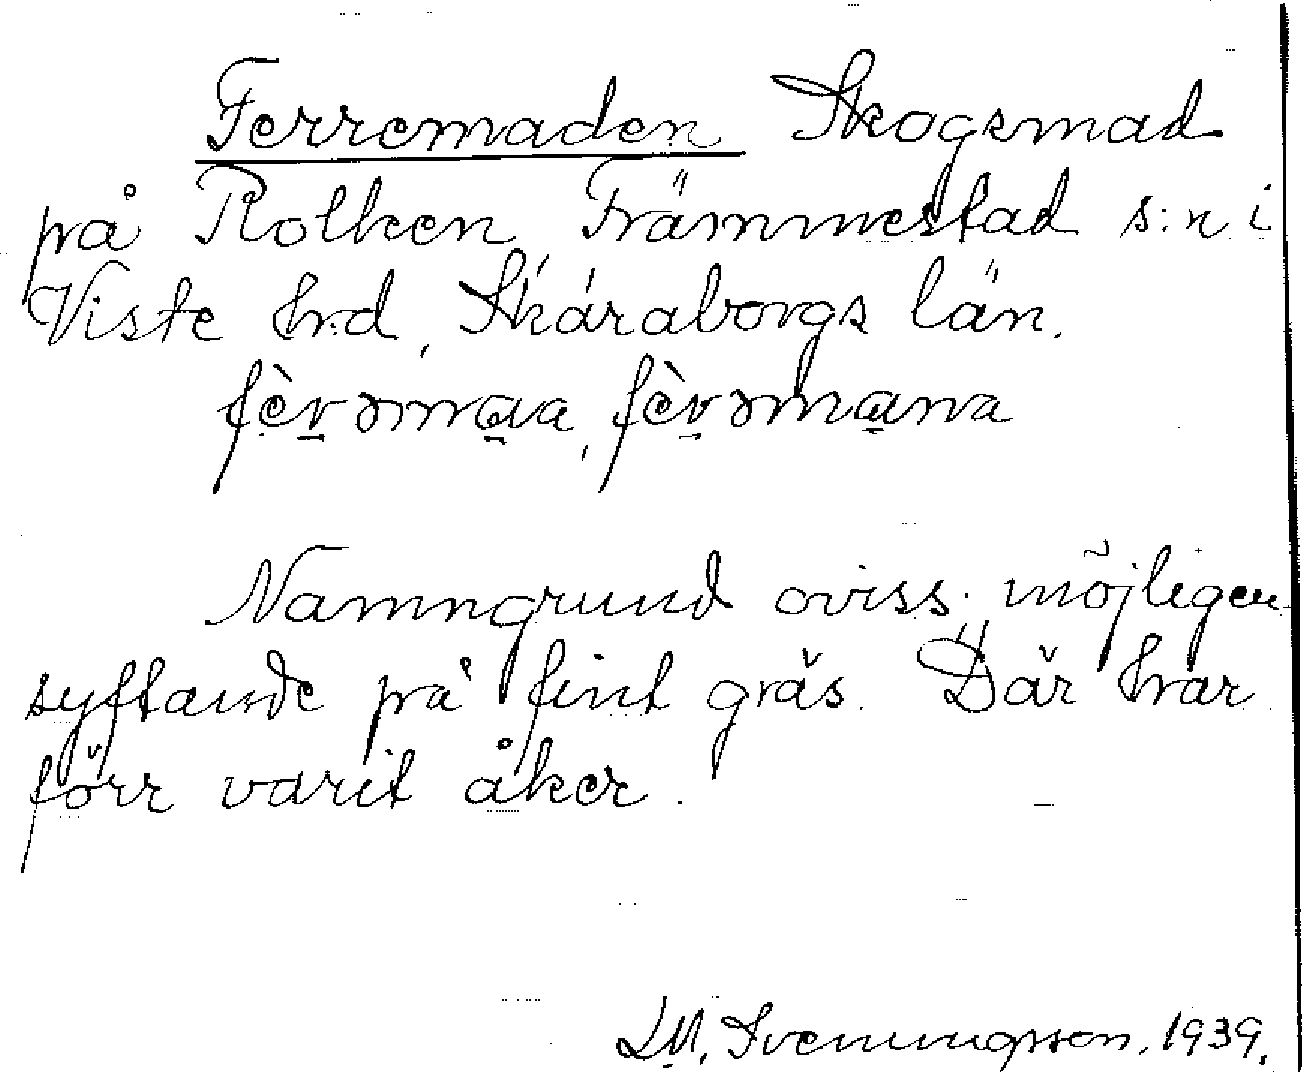 Ferremaden Skogsmad
på Rolken, Främmestad s:n i
Viste hrd, Skaraborgs län.
fèrəmaa, fèrəmana
Namngrund oviss; möjligen
syftande på fint gräs. Där har
förr varit åker.
L.M. Svenungsson, 1939.